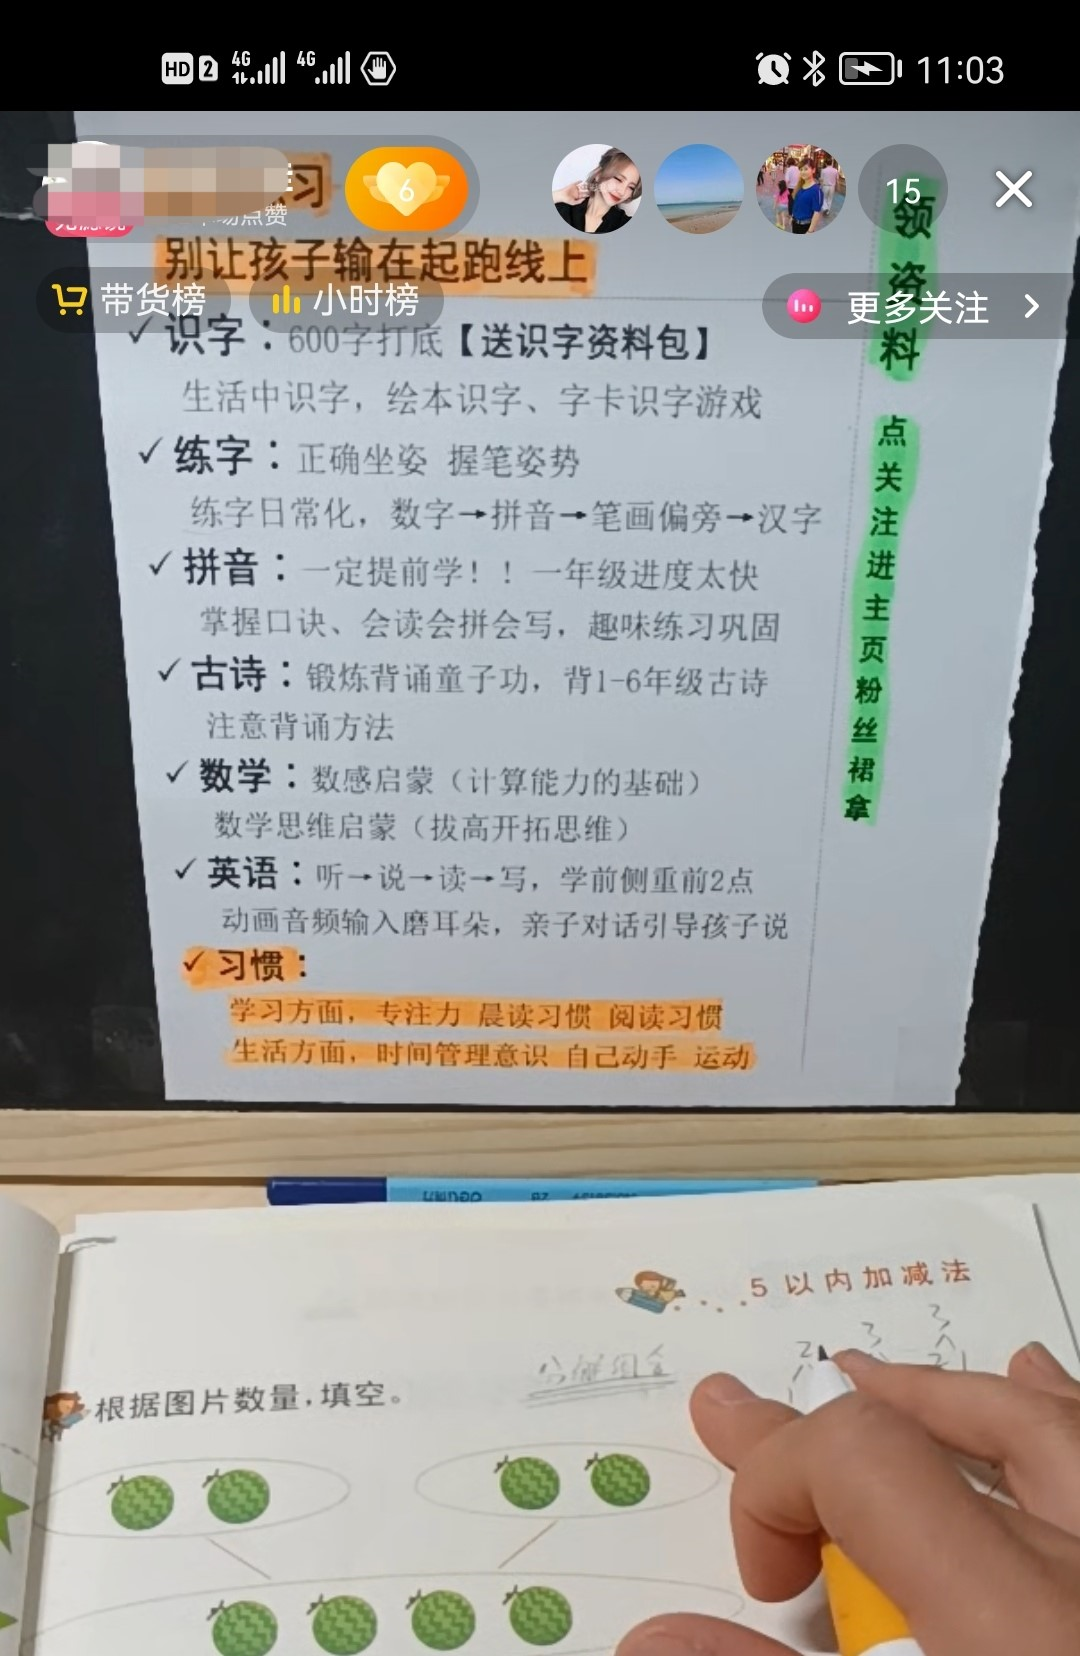 HD 2 4G 4G 11:03
习
6
15
场点赞
别让孩子输在起跑线上
带货榜
小时榜
更多关注
识字：600字打底【送识字资料包】
生活中识字，绘本识字、字卡识字游戏
练字：正确坐姿 握笔姿势
练字日常化，数字→拼音→笔画偏旁→汉字
拼音：一定提前学！！一年级进度太快
掌握口诀、会读会拼会写，趣味练习巩固
古诗：锻炼背诵童子功，背1-6年级古诗
注意背诵方法
数学：数感启蒙（计算能力的基础）
数学思维启蒙（拔高开拓思维）
英语：听→说→读→写，学前侧重前2点
动画音频输入磨耳朵，亲子对话引导孩子说
习惯：
学习方面，专注力 晨读习惯 阅读习惯
生活方面，时间管理意识 自己动手 运动
领资料
点关注进主页粉丝裙拿
5以内加减法
分解组合
2 3 3
2 1
根据图片数量，填空。